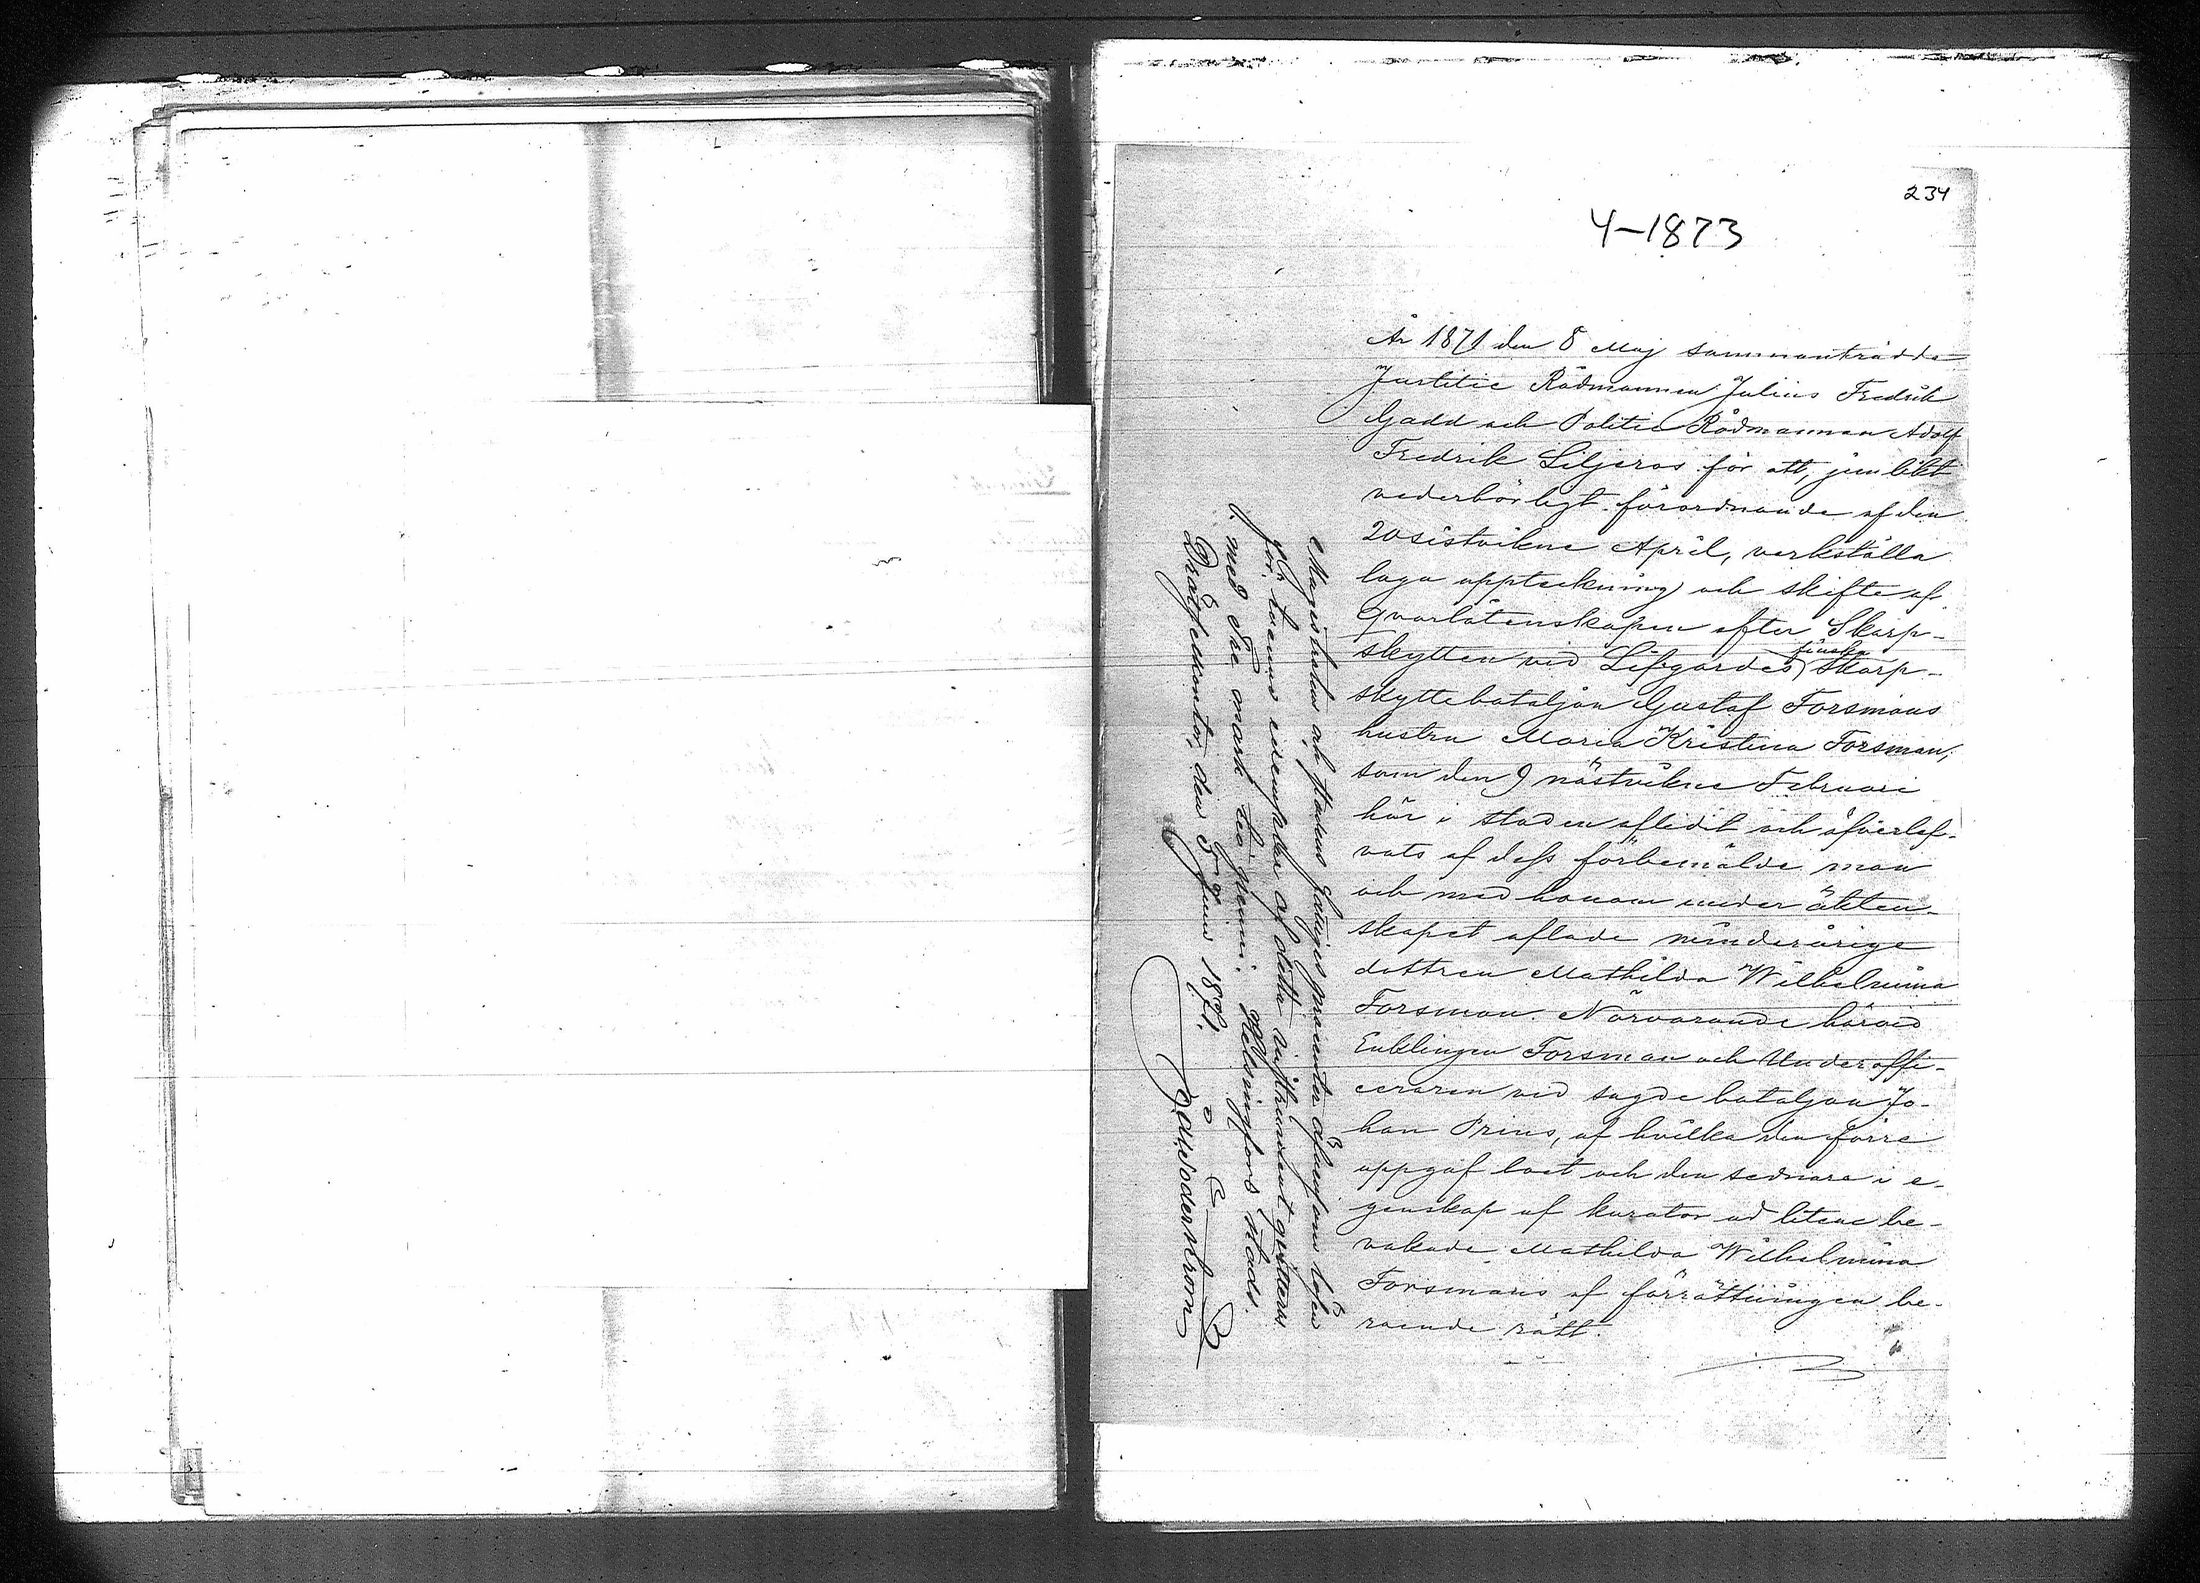 234
4-1873
År 1871 den 8 Maj sammanträdde
Justitie Rådmannen Julius Fredrik
Gadd och Politie Rådmannen Adolf
Fredrik Liljeros för att, jemlikt
vederbörligt förordnande af den
20 sistvikne April, verkställa
laga uppteckning och skifte af
qvarlåtenskapen efter Skarp-
skytten vid Lifgardes finska Skarp-
skyttebataljon Gustaf Forsmans
hustru Maria Kristina Forsman,
som den 9 nästvikne Februari
här i staden aflidit och öfverlef-
vats af dess förbemälde man
och med honom under äkten-
skapet aflade minderåriga
dottren Mathilda Wilhelmina
Forsman. Närvarande härvid
Enklingen Forsman och Underoffi-
ceraren vid sagde bataljon Jo-
han Prins, af hvilka den förre
uppgaf boet och den sednare i e-
genskap af kurator ad litem be-
vakade Mathilda Wilhelmina
Forsmans af förrättningen be-
roende rätt.
Magistratens och stadens fattiges procenter äfvensom lösen
för tvenne exemplar af detta instrument qvitteras
med tre mark tio penni. Helsingfors stads
Drätselkontor, den 5 Juni 1871.